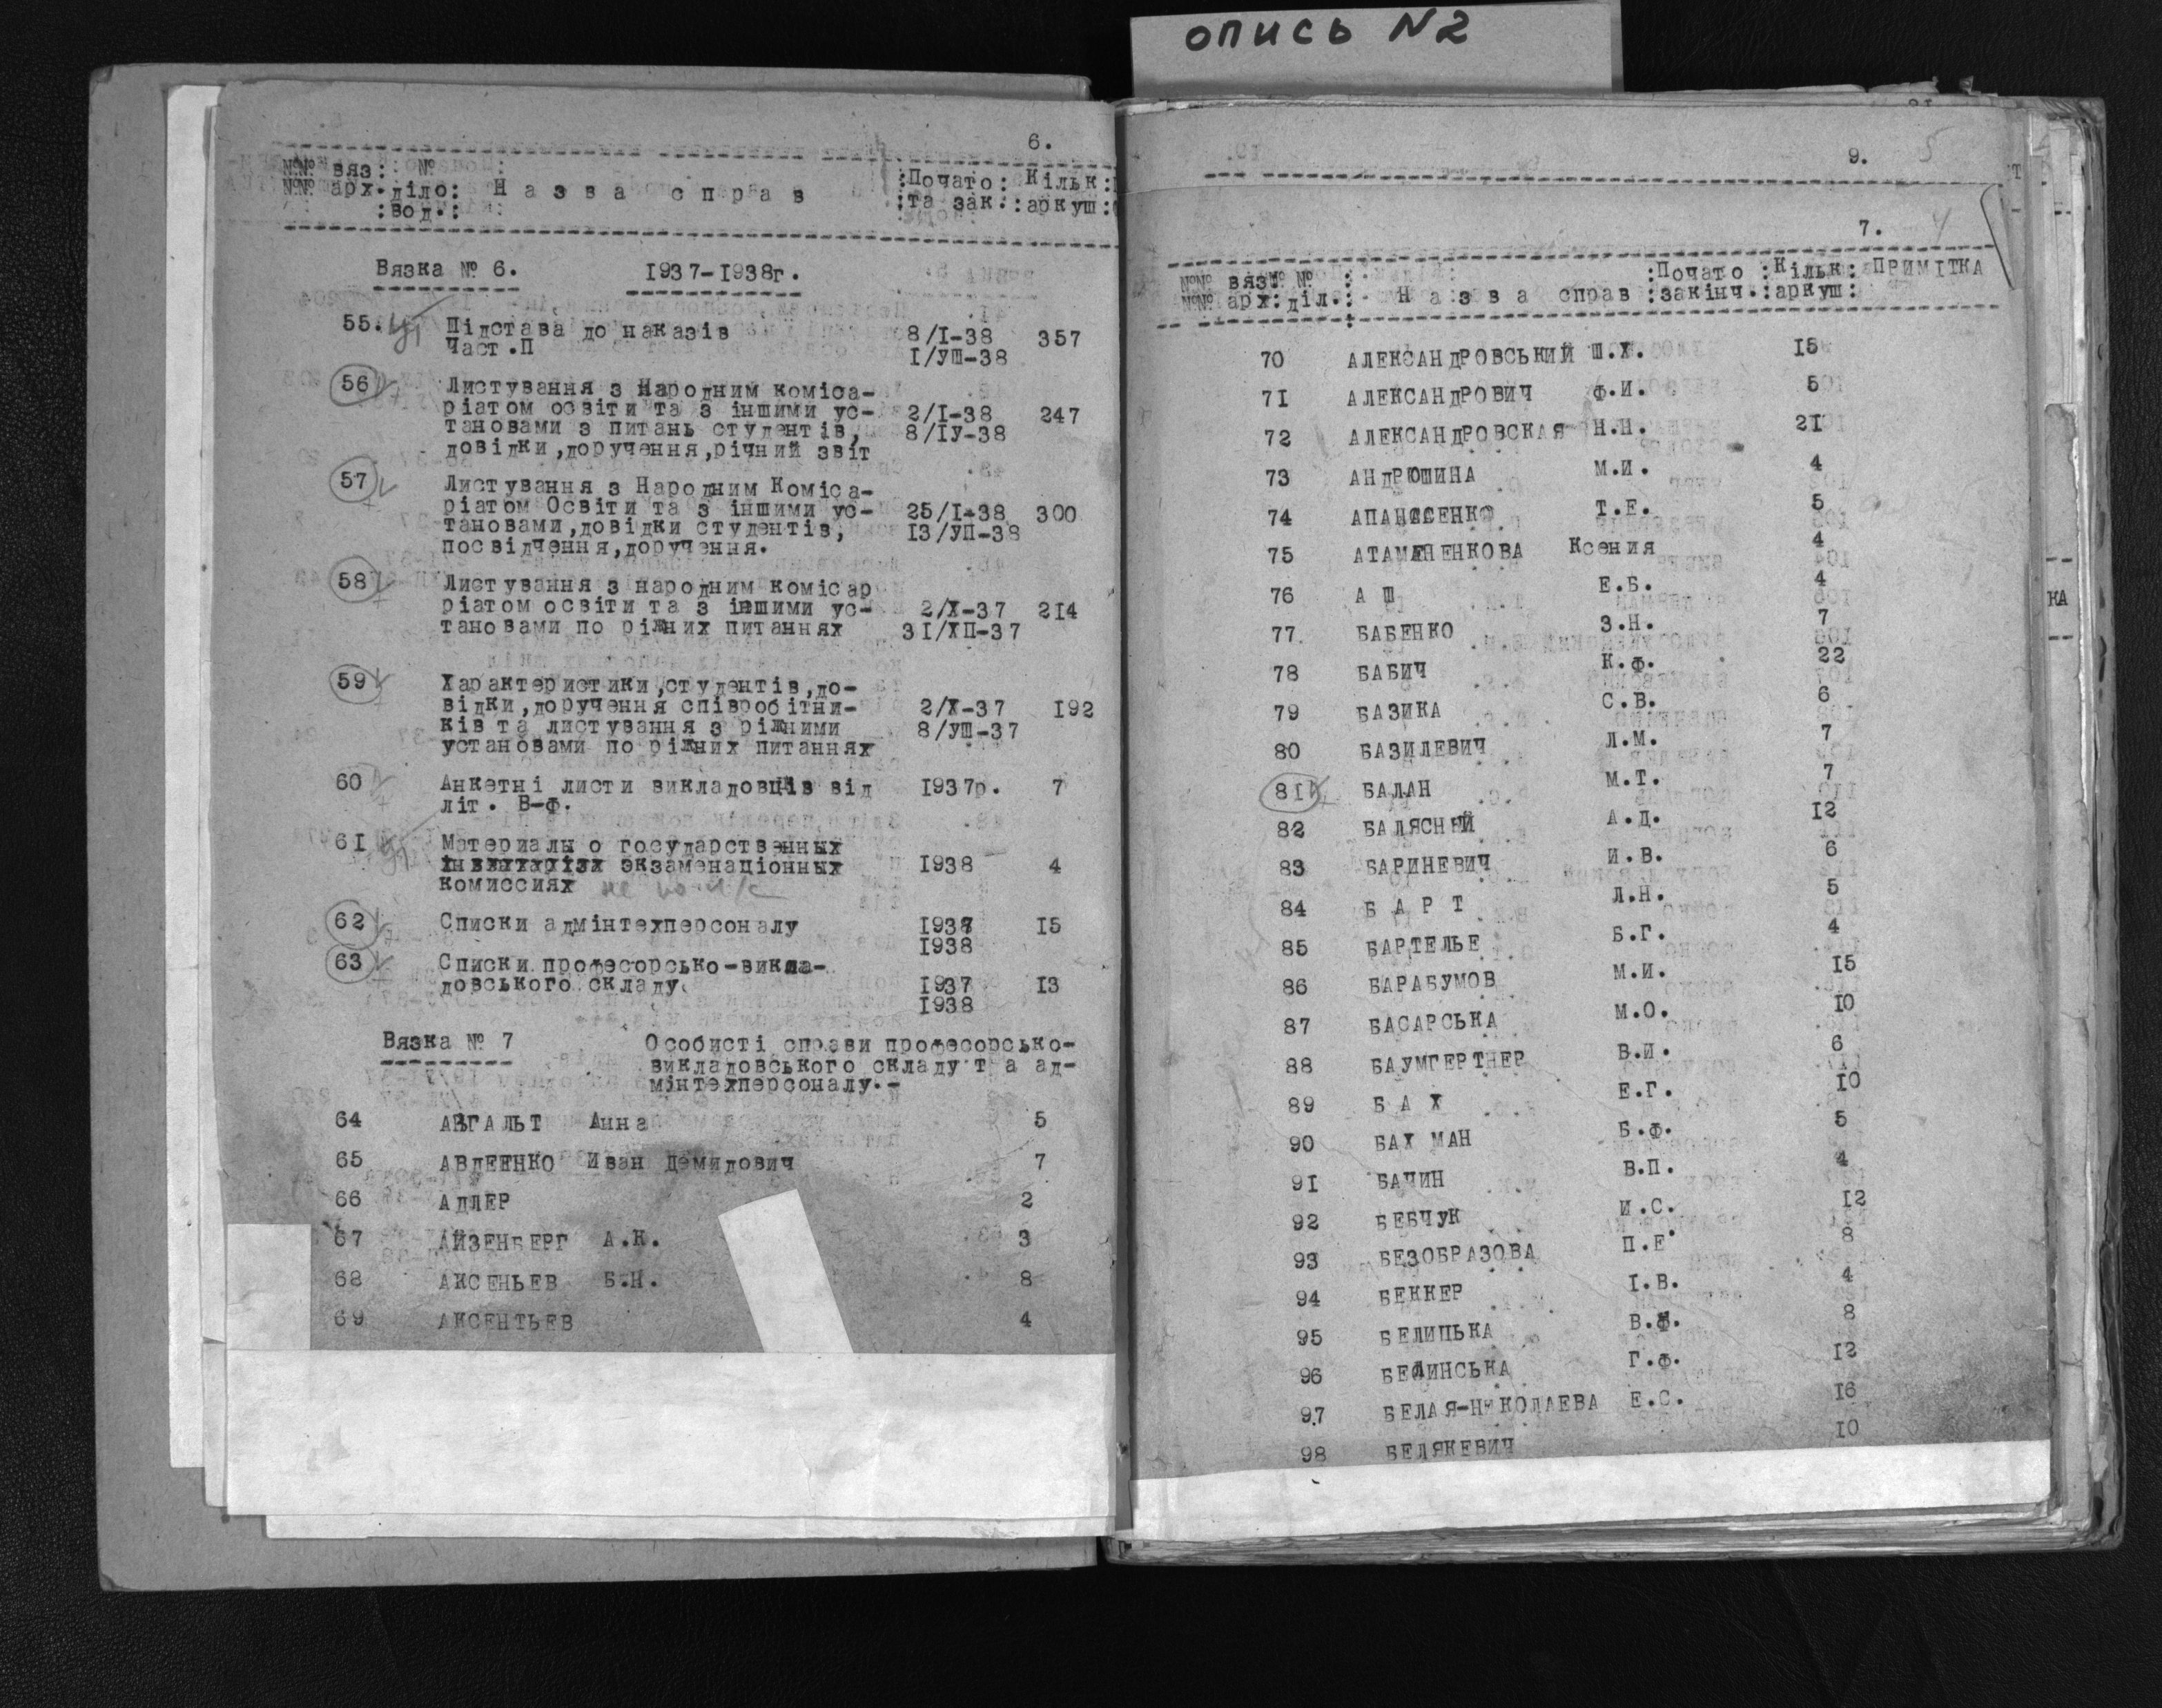 опись N2
6.
№№ вяз: № :
№№ арх. діло: Назва справ :Почато: Кільк:
:вод.: :та зак.:аркуш:
Вязка № 6. 1937-1938г.
55. Підстава до наказів 8/I-38 357
Част.П I/УШ-38
56 Листування з Народним коміса-
ріатом освіти та з іншими ус- 2/I-38 247
тановами з питань студентів, 8/IУ-38
довідки,доручення,річний звіт
57 Листування з Народним Коміса-
ріатом Освіти та з іншими ус- 25/I-38 300
тановами,довідки студентів, I3/УП-38
посвідчення,доручення.
58 Листування з народним комісар
ріатом освіти та з іншими ус- 2/X-37 2I4
тановами по ріжних питаннях 3I/ХП-37
59 Характеристики,студентів,до-
відки,доручення співробітни- 2/X-37 I92
ків та листування з ріжними 8/УШ-37
установами по ріжних питаннях
60 Анкетні листи викладовців від I937р. 7
літ. В-ф.
6I Материалы о государственных
экзаменаціонных I938 4
комиссиях
62 Списки адмінтехперсоналу I937 I5
I938
63 Списки професорсько-викла-
довського складу I937 I3
I938
Вязка № 7 Особисті справи професорсько-
викладовського складу та ад-
мінтехперсоналу.-
64 АВГАЛЬТ Анна 5
65 АВДЕЕНКО Иван Демидович 7
66 АДЛЕР 2
67 АЙЗЕНБЕРГ А.К. 3
68 АКСЕНЬЕВ Б.Н. 8
69 АКСЕНТЬЕВ 4
9. 5
7. 4
№№ вяз: № : :Почато :Кільк: ПРИМІТКА
№№ арх: діл.: Назва справ :закінч.:аркуш:
70 АЛЕКСАНДРОВСЬКИЙ Ш.Х. I5
7I АЛЕКСАНДРОВИЧ ф.И. 5
72 АЛЕКСАНДРОВСКАЯ Н.Н. 2I
73 АНДРЮШИНА М.И. 4
74 АПАНАСЕНКО Т.Е. 5
75 АТАМАНЕНКОВА Ксения 4
76 А Ш Е.Б. 4
77. БАБЕНКО З.Н. 7
78 БАБИЧ К.ф. 22
79 БАЗИКА С.В. 6
80 БАЗИЛЕВИЧ Л.М. 7
8I БАЛАН М.Т. 7
82 БАЛЯСНЫЙ А.Д. I2
83 БАРИНЕВИЧ И.В. 6
84 Б А Р Т Л.Н. 5
85 БАРТЕЛЬЕ Б.Г. 4
86 БАРАБУМОВ М.И. I5
87 БАСАРСЬКА М.О. I0
88 БАУМГЕРТНЕР В.И. 6
89 Б А Х Е.Г. I0
90 БАХ МАН Б.ф. 5
9I БАЧИН В.П. 4
92 БЕБЧУК И.С. I2
93 БЕЗОБРАЗОВА П.Е. 8
94 БЕККЕР I.В. 4
95 БЕЛИЦЬКА В.Ф. 8
96 БЕЛИНСЬКА Г.ф. I2
97 БЕЛАЯ-НИКОЛАЕВА Е.С. I6
98 БЕЛЯКЕВИЧ I0
КА